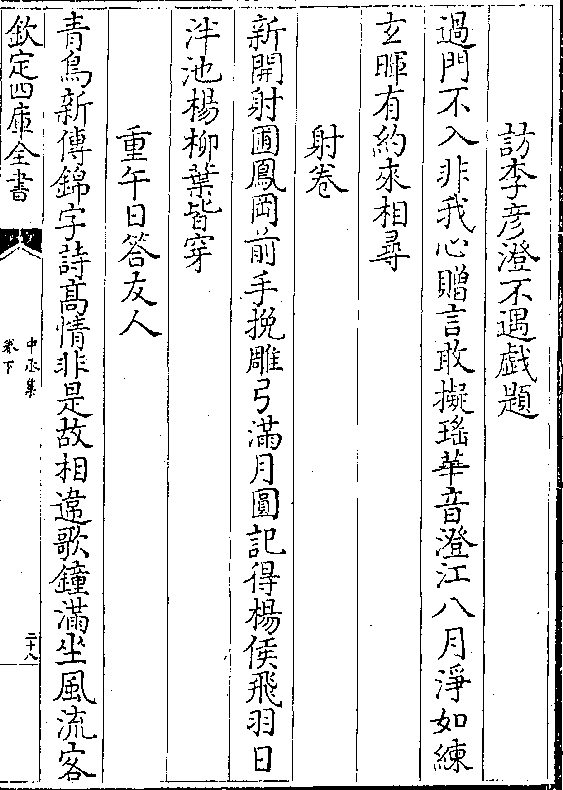 訪李彦澄不遇戯題
過門不入非我心贈言敢擬瑤華音澄江八月淨如練
玄暉有約來相尋
射卷
新開射圃鳳岡前手挽雕弓滿月圓記得楊侯飛羽日
泮池楊柳葉皆穿
重午日答友人
青鳥新傳錦字詩髙情非是故相違歌鐘滿坐風流客
欽定四庫全書
中丞集
卷下
二十八